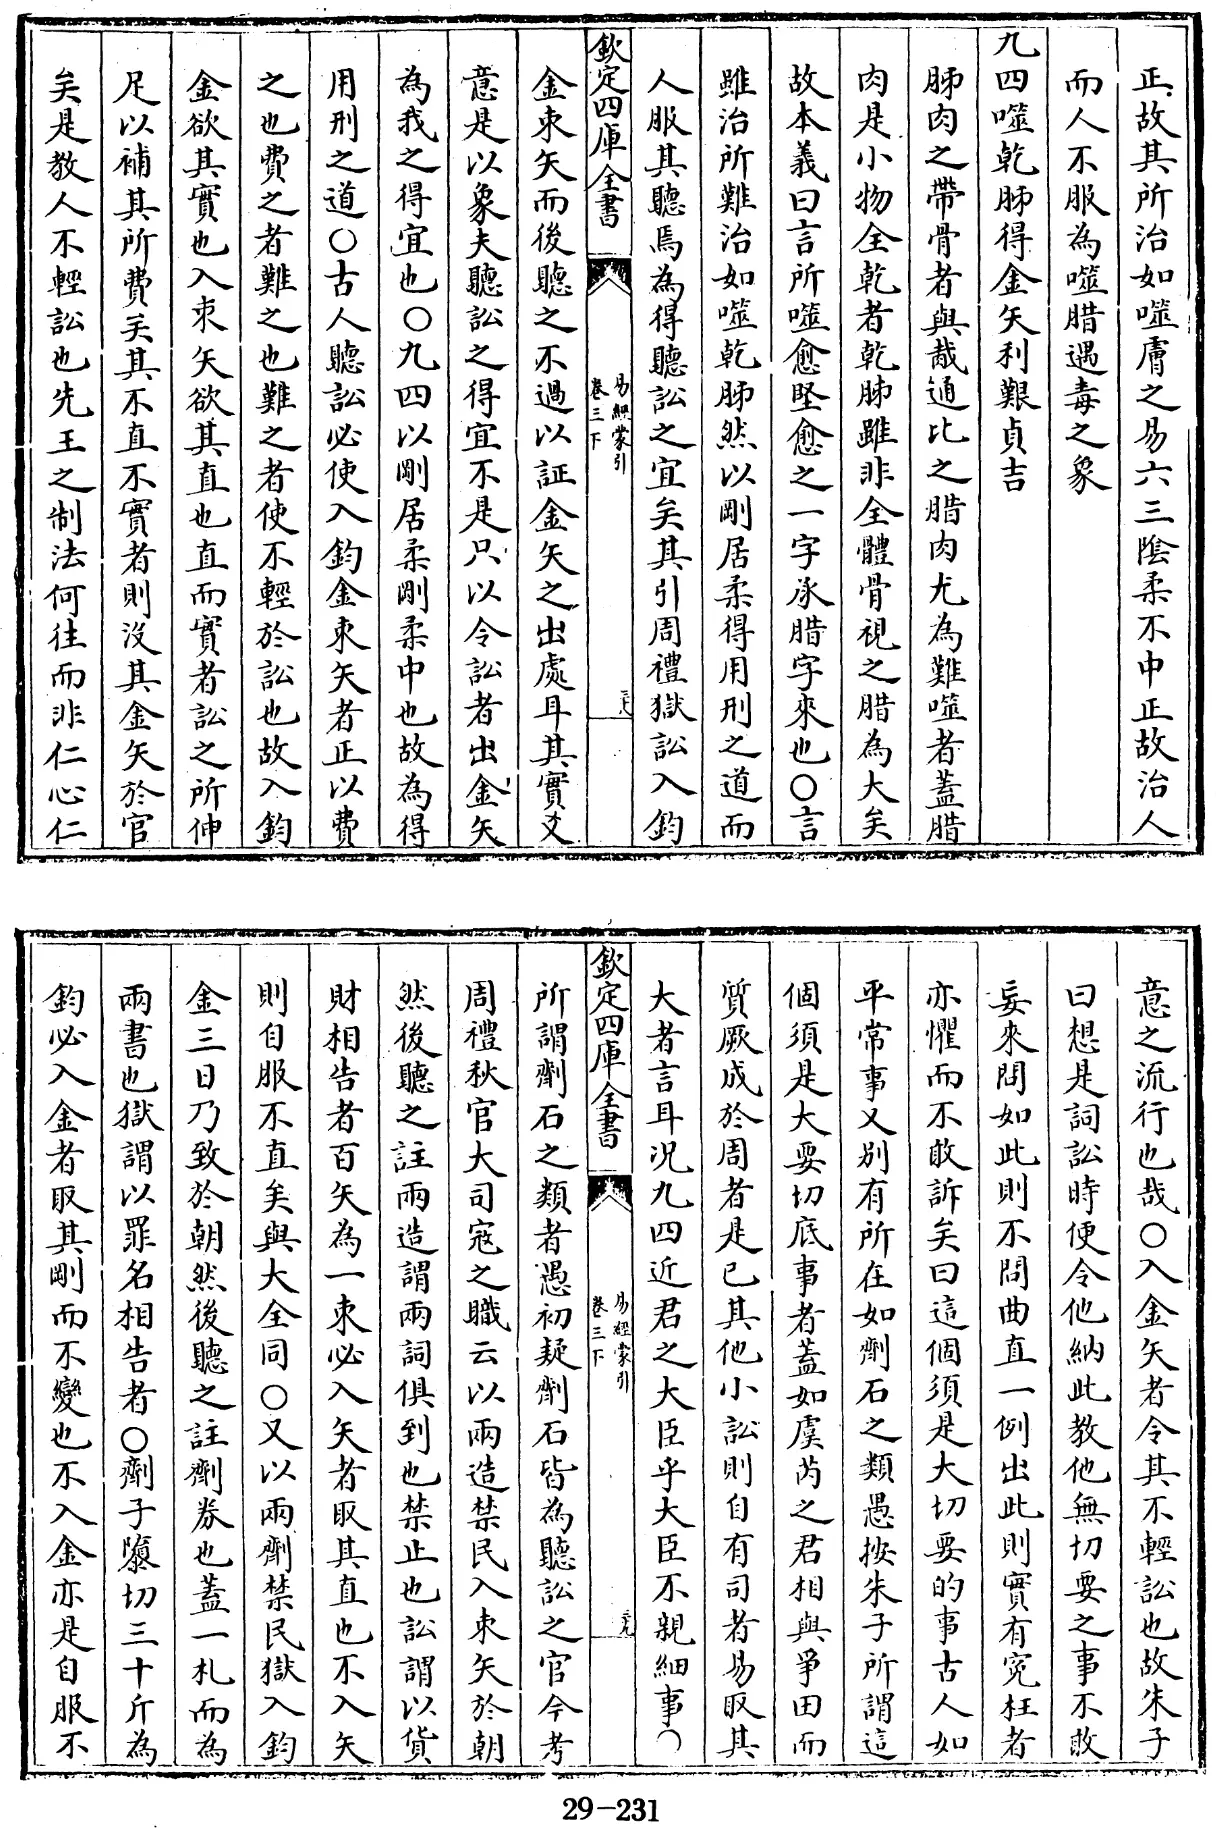 正故其所治如噬膚之易六三陰柔不中正故治人
而人不服為噬腊遇毒之象
九四噬乾胏得金矢利艱貞吉
胏肉之帶骨者與胾通比之腊肉尤為難噬者蓋腊
肉是小物全乾者乾胏雖非全體骨視之腊為大矣
故本義曰言所噬愈堅愈之一字承腊字來也〇言
雖治所難治如噬乾胏然以剛居柔得用刑之道而
人服其聽焉為得聽訟之宜矣其引周禮獄訟入鈞
欽定四庫全書
易經蒙引
卷三下
金束矢而後聽之不過以証金矢之出處耳其實爻
意是以象夫聽訟之得宜不是只以令訟者出金矢
為我之得宜也〇九四以剛居柔剛柔中也故為得
用刑之道〇古人聽訟必使入鈞金束矢者正以費
之也費之者難之也難之者使不輕於訟也故入鈞
金欲其實也入束矢欲其直也直而實者訟之所伸
足以補其所費矣其不直不實者則沒其金矢於官
矣是教人不輕訟也先王之制法何往而非仁心仁
意之流行也哉〇入金矢者令其不輕訟也故朱子
曰想是詞訟時便令他納此教他無切要之事不敢
妄來問如此則不問曲直一例出此則實有寃枉者
亦懼而不敢訴矣曰這個須是大切要的事古人如
平常事又別有所在如劑石之類愚按朱子所謂這
個須是大要切底事者蓋如虞芮之君相與爭田而
質厥成於周者是已其他小訟則自有司者易取其
大者言耳況九四近君之大臣乎大臣不親細事〇
欽定四庫全書
易經蒙引
卷三下
三九
所謂劑石之類者愚初疑劑石皆為聽訟之官今考
周禮秋官大司寇之職云以兩造禁民入束矢於朝
然後聽之註兩造謂兩詞俱到也禁止也訟謂以貨
財相告者百矢為一束必入矢者取其直也不入矢
則自服不直矣與大全同〇又以兩劑禁民獄入鈞
金三日乃致於朝然後聽之註劑券也蓋一札而為
兩書也獄謂以罪名相告者〇劑子隨切三十斤為
鈞必入金者取其剛而不變也不入金亦是自服不
29-231